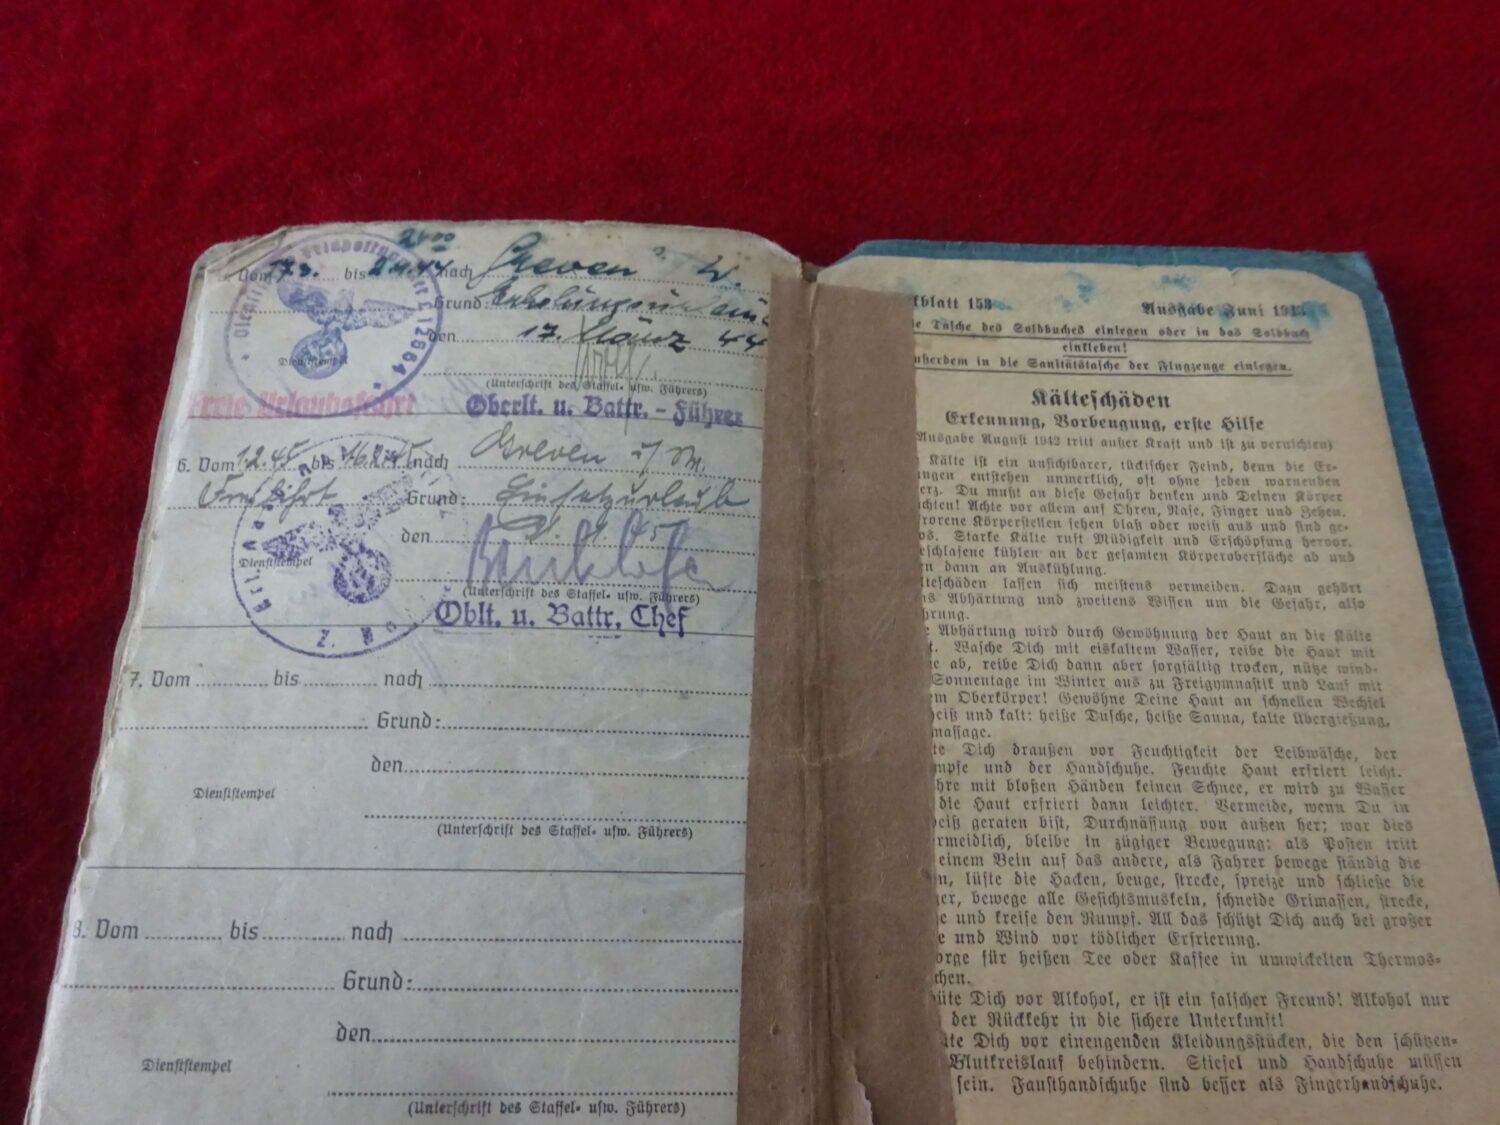 Vom 17.3. bis 2.4.44 nach Greven W.
Grund: Erholungsurlaub
den 17. März 44
Dienststempel
(Unterschrift des Staffel- usw. Führers)
Freie Urlaubsfahrt
Oberlt. u. Battr. - Führer
6. Vom 1.2.45 bis 16.2.45 nach Greven i/W.
Freifahrt Grund: Einsatzurlaub
den
Dienststempel
(Unterschrift des Staffel- usw. Führers)
Oblt. u. Battr. Chef
7. Vom bis nach
Grund:
den
Dienststempel
(Unterschrift des Staffel- usw. Führers)
8. Vom bis nach
Grund:
den
Dienststempel
(Unterschrift des Staffel- usw. Führers)
kblatt 153 Ausgabe Juni
Tasche des Soldbuches einlegen oder in das Soldbuch
einkleben!
ußerdem in die Sanitätstasche der Flugzeuge einlegen.
Kälteschäden
Erkennung, Vorbeugung, erste Hilfe
Ausgabe August 1942 tritt außer Kraft und ist zu vernichten)
Kälte ist ein unsichtbarer, tückischer Feind, denn die Er-
ngen entstehen unmerklich, oft ohne jeden warnenden
erz. Du mußt an diese Gefahr denken und Deinen Körper
chten! Achte vor allem auf Ohren, Nase, Finger und Zehen.
rorene Körperstellen sehen blaß oder weiß aus und sind ge-
os. Starke Kälte ruft Müdigkeit und Erschöpfung hervor.
eschlafene kühlen an der gesamten Körperoberfläche ab und
n dann an Auskühlung.
lteschäden lassen sich meistens vermeiden. Dazu gehört
ns Abhärtung und zweitens Wissen um die Gefahr, also
hrung.
e Abhärtung wird durch Gewöhnung der Haut an die Kälte
t. Wasche Dich mit eiskaltem Wasser, reibe die Haut mit
e ab, reibe Dich dann aber sorgfältig trocken, nütze wind-
Sonnentage im Winter aus zu Freigymnastik und Lauf mit
em Oberkörper! Gewöhne Deine Haut an schnellen Wechsel
heiß und kalt: heiße Dusche, heiße Sauna, kalte Übergießung,
massage.
te Dich draußen vor Feuchtigkeit der Leibwäsche, der
mpfe und der Handschuhe. Feuchte Haut erfriert leicht.
hre mit bloßen Händen keinen Schnee, er wird zu Wasser
die Haut erfriert dann leichter. Vermeide, wenn Du in
eiß geraten bist, Durchnässung von außen her; war dies
rmeidlich, bleibe in zügiger Bewegung: als Posten tritt
einem Bein auf das andere, als Fahrer bewege ständig die
n, lüfte die Hacken, beuge, strecke, spreize und schließe die
er, bewege alle Gesichtsmuskeln, schneide Grimassen, strecke,
e und kreise den Rumpf. All das schützt Dich auch bei großer
e und Wind vor tödlicher Erfrierung.
orge für heißen Tee oder Kaffee in umwickelten Thermos-
chen.
üte Dich vor Alkohol, er ist ein falscher Freund! Alkohol nur
der Rückkehr in die sichere Unterkunft!
üte Dich vor einengenden Kleidungsstücken, die den schützen-
Blutkreislauf behindern. Stiefel und Handschuhe müssen
sein. Fausthandschuhe sind besser als Fingerhandschuhe.